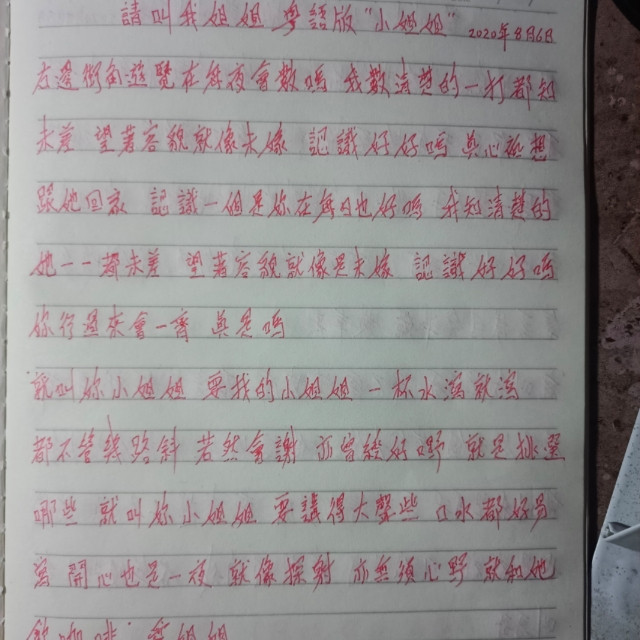 請叫我姐姐 粵語版“小姐姐” 2020年8月6日
左邊街角遊覽在每夜會數嗎 我數清楚的一打都知
未差 望著容貌就像未嫁 認識好好嗎 真心祗想
跟他回家 認識一個是你在每日也好嗎 我知清楚的
他一一都未差 望著容貌就像是未嫁 認識好好嗎
你行過來會一齊 真是嗎
就叫妳小姐姐 要我的小姐姐 一杯水瀉就瀉
都不管幾路斜 若然會謝 亦曾經好嘢 就是挑選
哪些 就叫妳小姐姐 要講得大聲些 口水都好易
寫 開心也是一夜 就像探射 亦無須心野 就和他
飲咖啡 姐姐